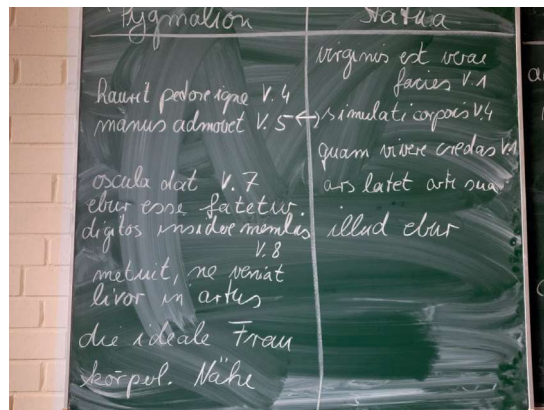 Pygmalion
haurit pectore igne V. 4
manus admovet V. 5 ↔
oscula dat V. 7
ebur esse fatetur.
digitos insidere membris
V. 8
metuit, ne veniat
livor in artus
die ideale Frau
körperl. Nähe
Statua
virginis est verae
facies V. 1
simulati corporis V. 4
quam vivere credas V. 1
ars latet arte sua
illud ebur